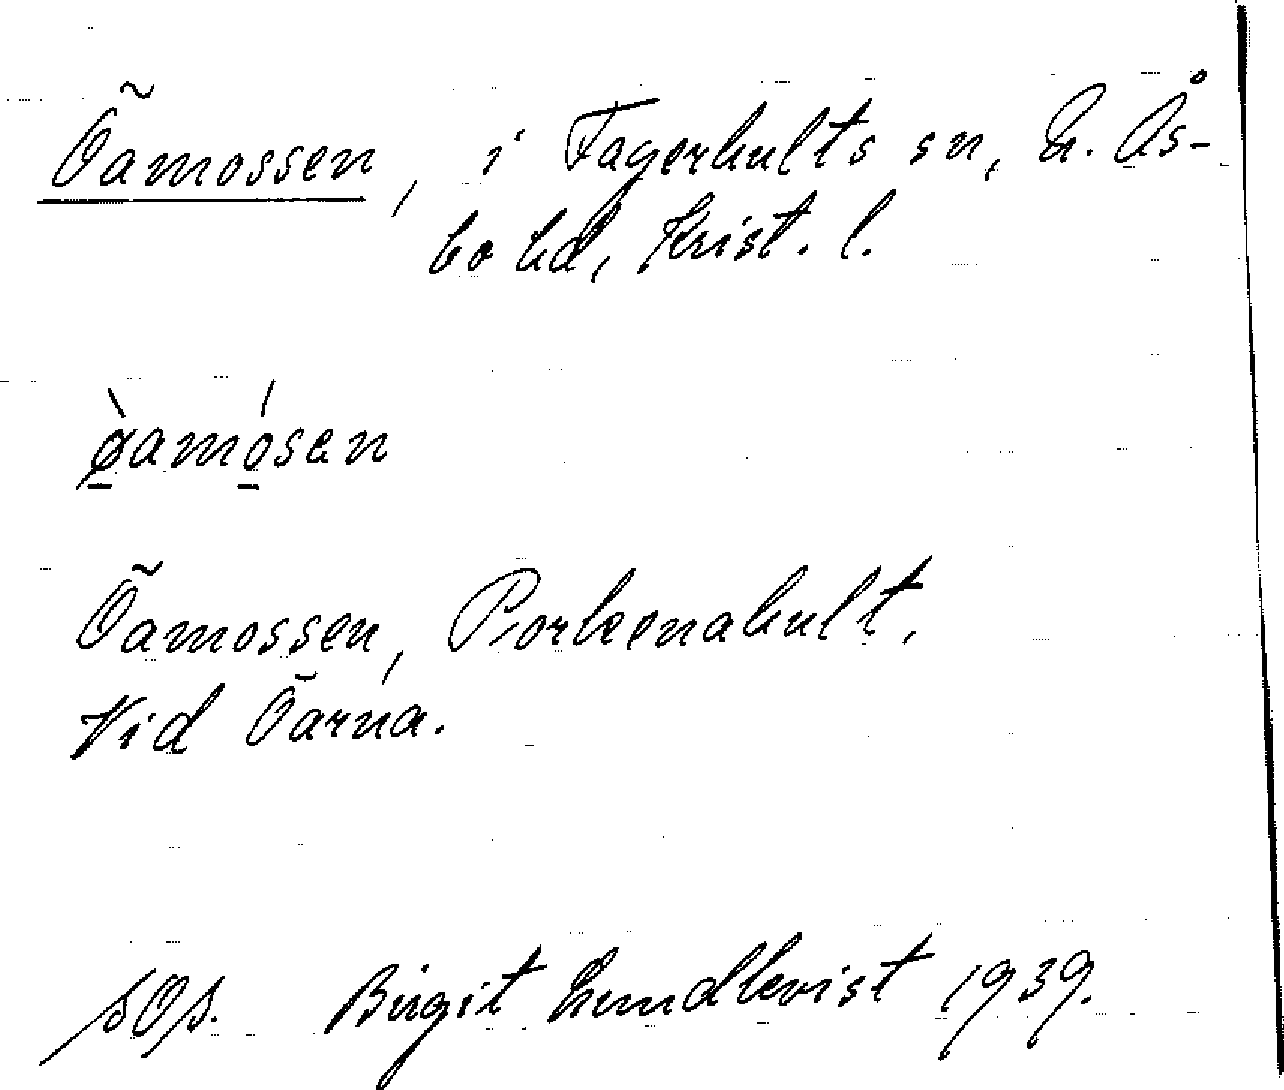 Öamossen, i Fagerhults sn, N. Ås-
bo hd, Krist. l.
ø̀amósen
Öamossen, Porkenahult.
Vid Öarna.
SOS. Birgit Lundkvist 1939.